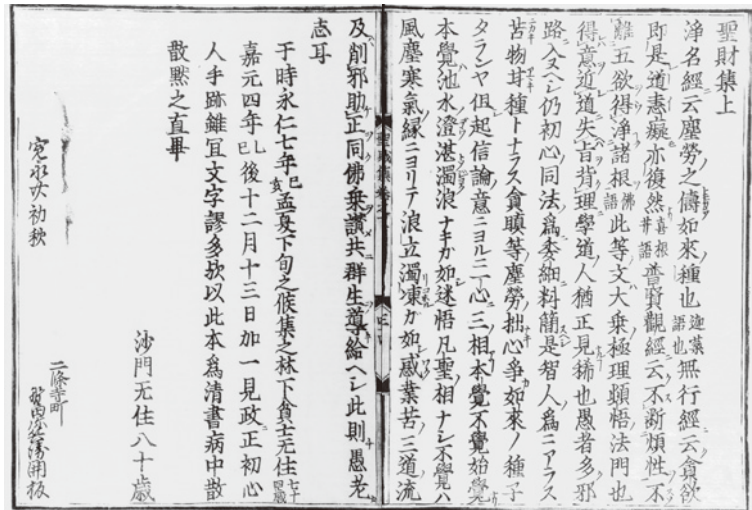 聖財集上
淨名經云塵勞之儔如來種也迦葉語也無行經云貪欲
即是道恚癡亦復然喜根語普賢觀經云不斷煩惱不
離五欲得淨諸根佛語此等文大乘極理頓悟法門也
得意近道失旨背理學道人猶正見稀也愚者多邪
路入ヌヘシ仍初心同法爲委細料簡是智人爲ニアラス
苦物甘種トナラス貪瞋等塵勞拙心爭如來ノ種子
タランヤ但起信論意ニヨル三一心三相本覺不覺始覺
本覺池水澄湛濁浪ナキカ如迷悟凡聖相ナシ不覺ハ
風塵寒氣緣ニヨリテ浪立濁凍カ如惑業苦三道流
及削邪助正同佛乘讚共群生導給ヘシ此則愚老
志耳
于時永仁七年己亥孟夏下旬之候集之林下貧士无住七十四歳
嘉元四年後十二月十三日加一見政正初心
人手跡雖宜文字謬多故以此本爲清書病中散
散點之直畢
沙門无住八十歳
聖財集卷上
寛永廿初秋
二條寺町
開板